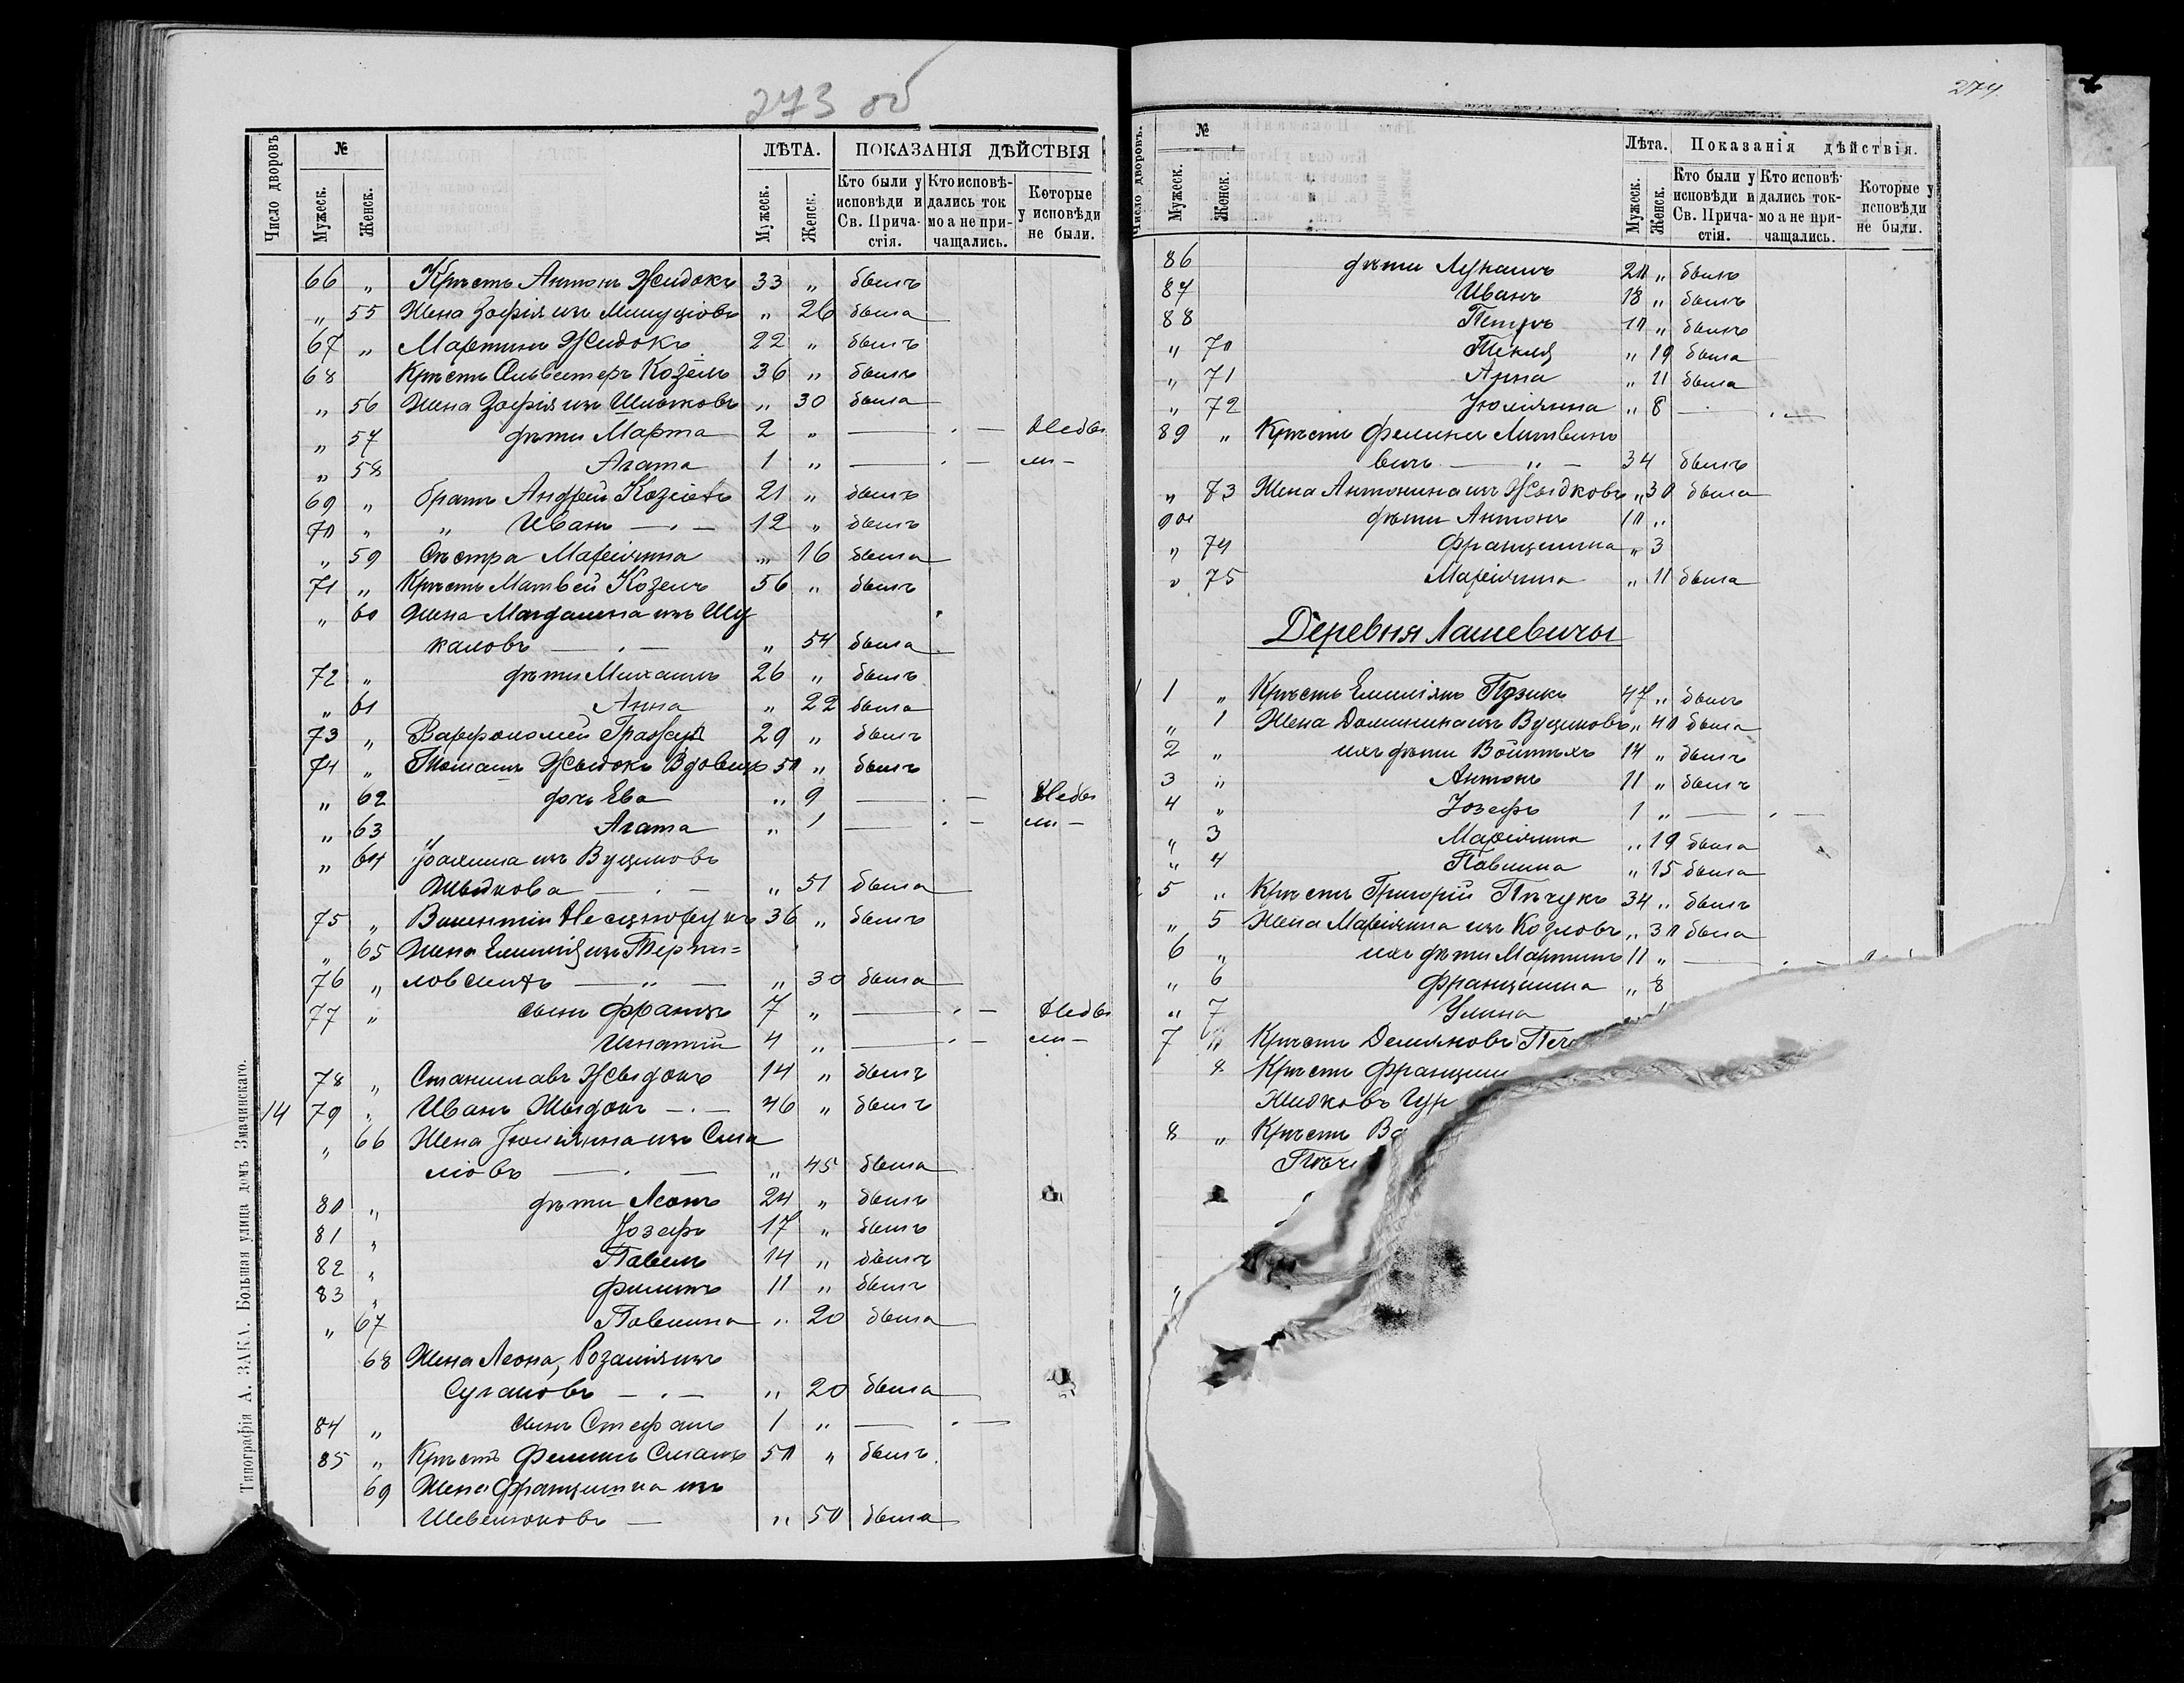 273 об
Число дворовъ. № Мужеск. Женск. ЛѢТА. Мужеск. Женск. ПОКАЗАНІЯ ДѢЙСТВІЯ
Кто были у исповѣди и Св. Прича- стія. Кто исповѣ- дались ток мо а не при- чащались. Которые у исповѣди не были.
66 „ Крѣстъ Антонъ Жидокъ 33 „ былъ
„ 55 Жена Зофія изъ 26 была
67 „ Мартинъ Жидокъ 22 „ былъ
68 Крѣстъ Сильвестеръ Козелъ 36 „ былъ
„ 56 Жена Зофія изъ „ 30 была
„ 57 дѣти Марта 2 „ — . — Небы
„ 58 Агата 1 „ — . — ли —
69 „ братъ Андрей 21 „ былъ
70 „ „ Иванъ — . — 12 „ былъ
„ 59 Сѣстра Маріянна „ 16 была
71 „ Крѣстъ Матвей Козелъ 56 „ былъ
„ 60 Жена Магдалена изъ Шу
каловъ — . — „ 54 была
72 „ дѣти Михаилъ 26 „ былъ
„ 61 Анна „ 22 была
73 „ Варфоломей 29 „ былъ
74 „ Томашъ Жыдокъ Вдовецъ 50 „ былъ
„ 62 дочь Ева „ 9 — . — Небы
„ 63 Агата „ 1 — . — ли —
„ 64 изъ Вуциковъ
Жыдкова — . — „ 51 была
75 „ Валентій 36 „ былъ
„ 65 Жена Емилія изъ Терпи=
76 „ — „ — „ 30 была
77 „ сынъ Францъ 7 „ — . — Небы
Игнатій 4 „ — . — ли —
78 „ Станиславъ Жыдокъ 14 „ былъ
14 79 „ Иванъ Жыдокъ — . — 46 „ былъ
„ 66 Жена Юліянна изъ Сма
ліовъ — . — „ 45 была
80 „ дѣти Леонъ 24 „ былъ
81 „ Іозефъ 17 „ былъ
82 „ Павелъ 14 „ былъ
83 „ Филипъ 11 „ былъ
„ 67 Павлина „ 20 была
68 Жена Леона, Розалія изъ
— . — „ 20 была
84 „ сынъ Стефанъ 1 „ — . —
85 „ Крѣстъ 50 „ былъ
69 Жена Францишка изъ
Шевелюковъ — „ 50 была
Типографія А. ЗАКА. Большая улица домъ Змачинскаго.
274
Число дворовъ. № Мужеск. Женск. Лѣта. Мужеск. Женск. Показанія дѣйствія.
Кто были у исповѣди и Св. Прича- стія. Кто исповѣ- дались ток- мо а не при- чащались. Которые у исповѣди не были.
86 дѣти Лукашъ 20 „ былъ
87 Иванъ 18 „ былъ
88 Петръ 10 „ былъ
„ 70 Текля „ 19 была
„ 71 Анна „ 11 была
„ 72 Юліянна „ 8 — . —
89 „ Крѣстъ Феликсъ Литвино
вичъ — „ — 34 былъ
„ 73 Жена Антонина изъ Жыдковъ „ 30 была
90 дѣти Антонъ 10 „
„ 74 Францишка „ 3
„ 75 Маріянна „ 11 была
Деревня Лашевичы
1 1 „ Крѣстъ Емиліянъ Пузикъ 47 „ былъ
„ 1 Жена Доминика изъ Вуциковъ „ 40 была
2 „ ихъ дѣти Войтѣхъ 14 „ былъ
3 „ Антонъ 11 „ былъ
4 „ Іозефъ 1 „ — . —
„ 3 Маріянна „ 19 была
„ 4 Павлина „ 15 была
2 5 „ Крѣстъ Григорій Пѣчукъ 34 „ былъ
„ 5 Жена Маріянна изъ Козловъ „ 30 была
6 „ ихъ дѣти Мартинъ 11 „ — . —
„ 6 Францишка „ 8
„ 7 Улина
7 „ Крѣстъ
8 Крѣстъ Францишк
Жидковъ
8 „ Крѣстъ Ва
Пѣч